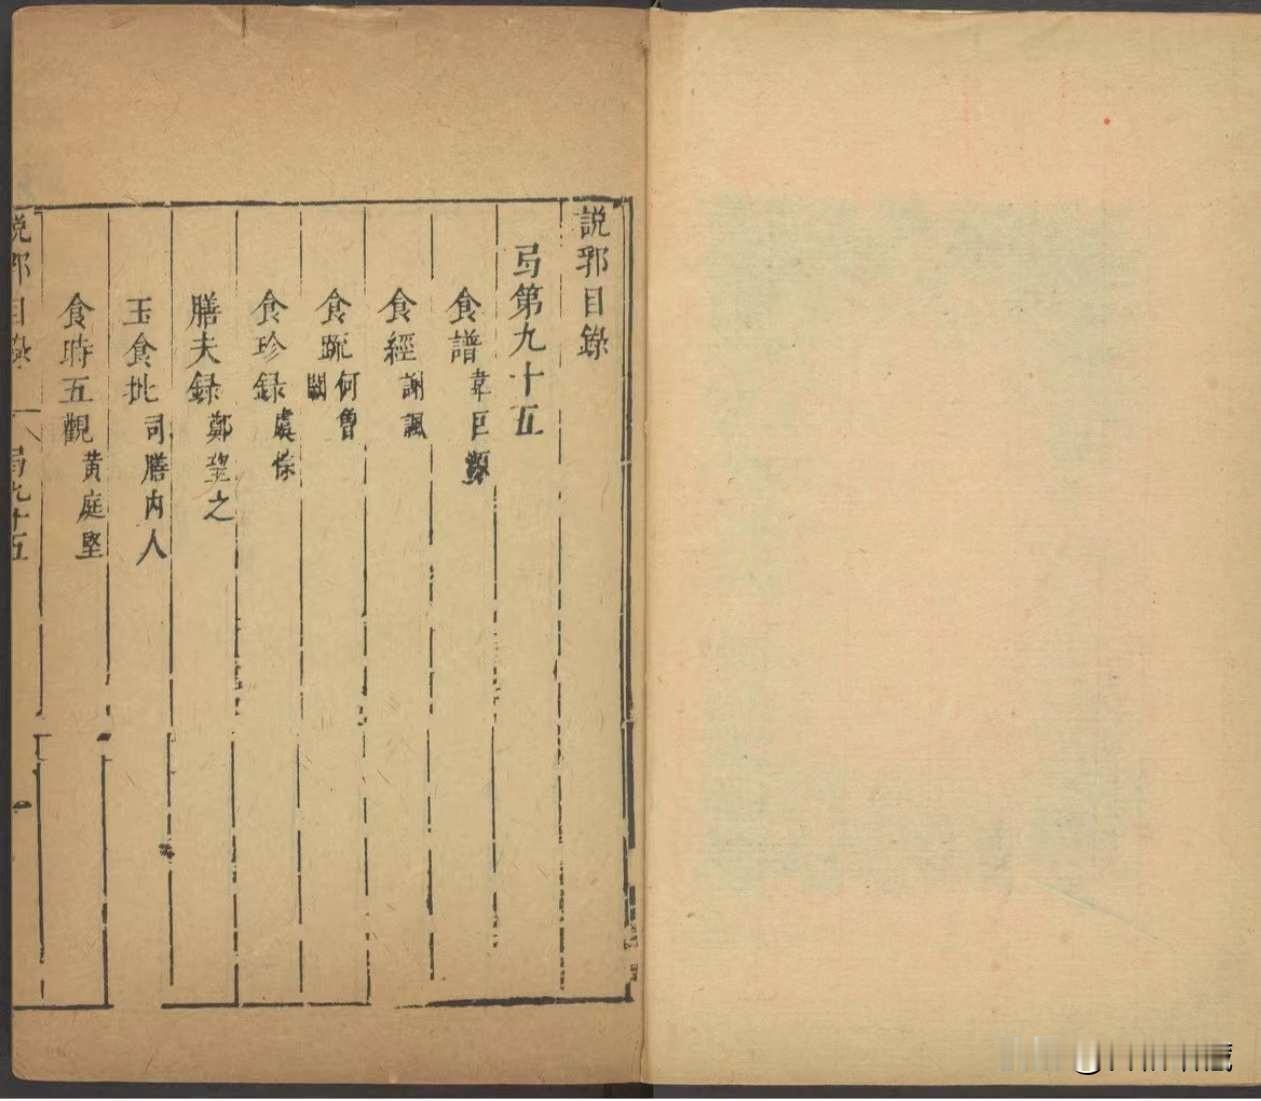 説郛目錄
弓第九十五
食譜 韋巨源
食經 謝諷
食疏 何曾 闕
食珍録 虞悰
膳夫録 鄭望之
玉食批 司膳内人
食時五觀 黄庭堅
説郛目錄 一 弓九十五